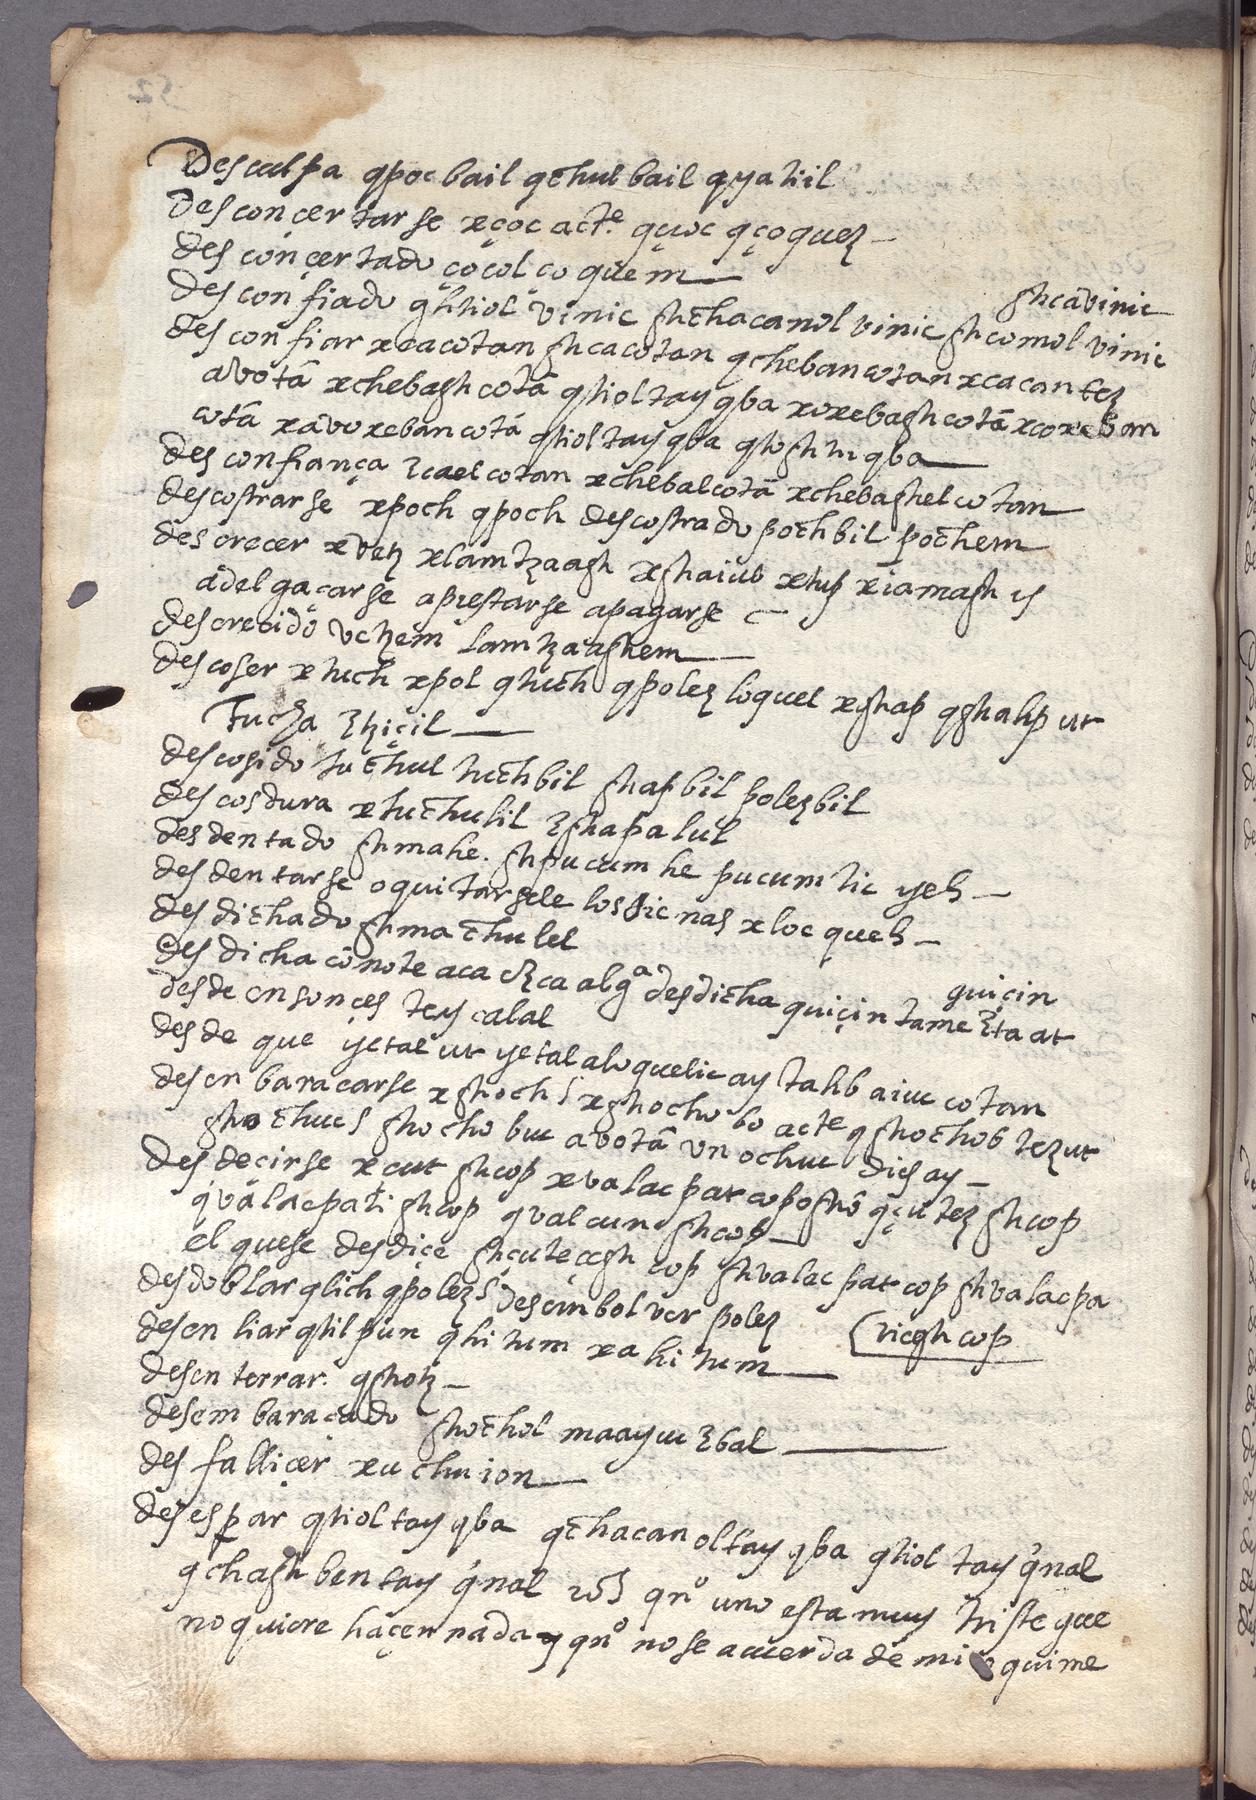 Desculpa qpocbail qchulbail qyahil
Desconçertarse xçoc acte. quoc qçoquez
desconçertado çocol çoquem
ghcavinic
desconfiado ghtiol vinic ghchacanol vinic ghcomol vinic
desconfiar xcacotan ghcacotan qchebancotan xcacantez
avotā xchebagh cotā qtioltay qba xoxebagh cotā xcoxeban
cotā xavoxeban cotā qtioltay qba qba
desconfiança cotan xchebalcotā xchebaghel cotan
descostrarse xpoch qpoch descostrado pochbil pochem
descrecer xvetz xlamtzaagh xghaiub xtup xiamagh is
adelgaçarse aprestarse apagarse
descrecido vetzem lamtzaaghem
descoser xtuch xpol qtuch qpolez loquel xghap qghahp ut
descosido tuchul tuchbil ghapbil polezbil
descosdura xtuchulil ghapalul
desdentado ghmahe. ghpucum he pucumtic yeh
desdentarse o quitarsele los xloc queh
desdichado ghmachulel
guiçin
desdicha co note aca alga desdicha quiçin tame ta at
desde ensonces tey calal
desde que yetal ut yetal aloquelic ay tahb aiuc cotan
desenbaracarse xghoch xghocho bo acte qghochob tez ut
ghochuc ghocho buc avotā un ochuc dies ay
desdecirse xcut ghcop xvalacpat copoghō qçutez ghcop
qvalacpati ghcop qvalcun ghcop
el quese desdiçe ghçuteçegh cop ghvalac pat cop ghvalacpa
desdoblar qlich qpolez desembolver polez
(viegh cop
desenliar qtilpun qhitum xahitum
desenterrar. qghotz
desembaraçado ghochol maayuc bal
desfalliçer xuchuion
desespar qtioltay qba qchacanoltay qba qtiol tay qnal
qchaghbentay qnal qno uno esta muy triste que
no quiere haçer nada y qno no se acuerda de mi quime